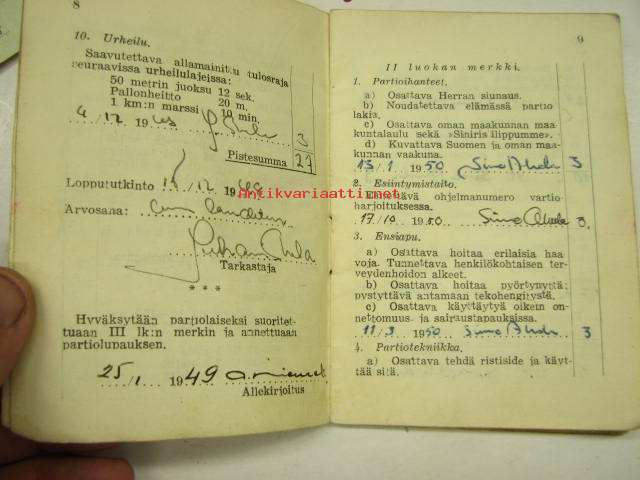 8
10. Urheilu.
Saavutettava allamainitu tulosraja
seuraavissa urheilulajeissa:
50 metrin juoksu 12 sek.
Pallonheitto 20 m.
1 km:n marssi 10 min.
4./12. 1948 3
Pistesumma 27
Loppututkinto 15/12 1948
Arvosana: cum laudatur
Tarkastaja
* * *
Hyväksytään partiolaiseksi suoritet-
tuaan III lk:n merkin ja annettuaan
partiolupauksen.
25/1 1949
Allekirjoitus
9
II luokan merkki.
1. Partioihanteet.
a) Osattava Herran siunaus.
b) Noudatettava elämässä partio
lakia.
c) Osattava oman maakunnan maa-
kuntalaulu sekä »Siniris liippumme».
d) Kuvattava Suomen ja oman maa-
kunnan vaakuna.
13/1 1950 3
2. Esiintymistaito.
Esitettävä ohjelmanumero vartio-
harjoituksessa.
17/10 1950 3.
3. Ensiapu.
a) Osattava hoitaa erilaisia haa
voja. Tunnettava henkilökohtaisen ter-
veydenhoidon alkeet.
b) Osattava hoitaa pyörtynyttä;
pystyttävä antamaan tekohengitystä.
c) Osattava käyttäytyä oikein on-
nettomuus- ja sairaustapauksissa.
11/3 1950 3
4. Partiotekniikka.
a) Osattava tehdä ristiside ja käyt-
tää sitä.
Antikvariaatti.net